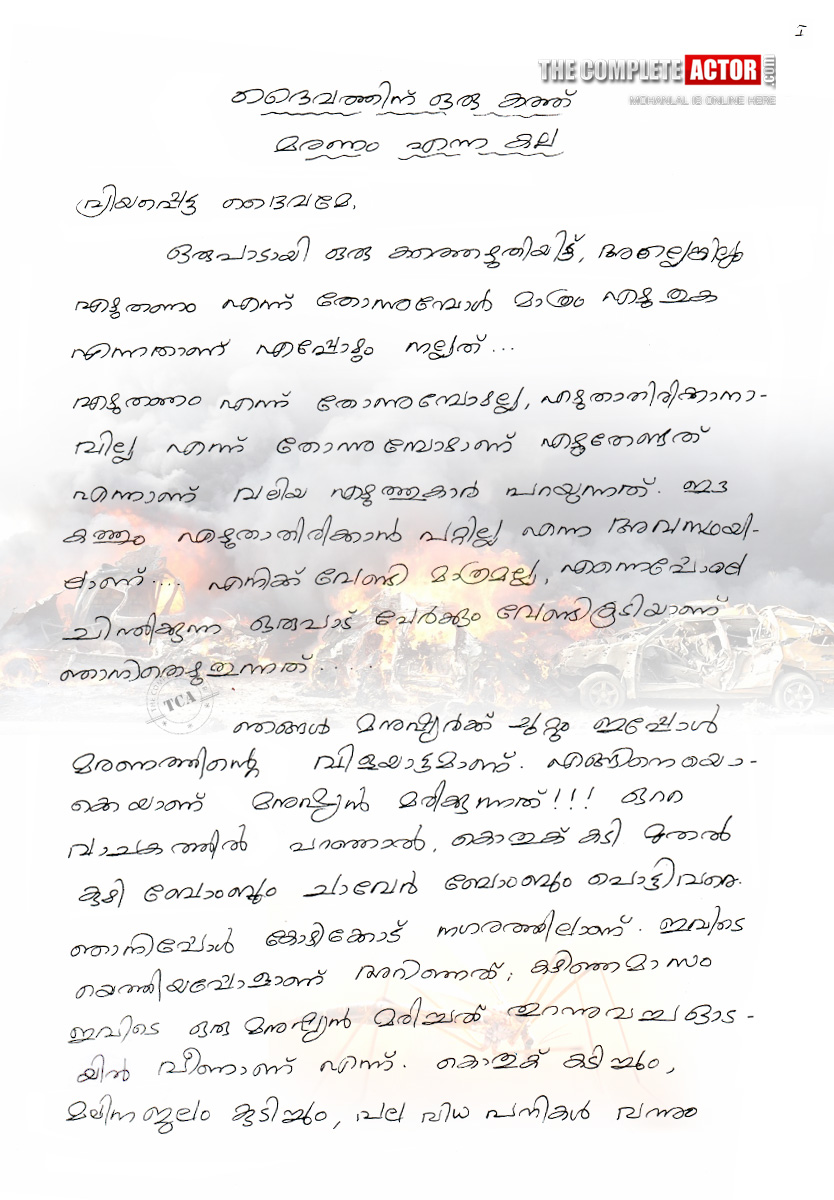 I
THE COMPLETE ACTOR .COM
MOHANLAL IS ONLINE HERE
ദൈവത്തിന് ഒരു കത്ത്
മരണം എന്ന കല
പ്രിയപ്പെട്ട ദൈവമേ,
ഒരുപാടായി ഒരു കത്തെഴുതിയിട്ട്, അല്ലെങ്കിലും
എഴുതണം എന്ന് തോന്നുമ്പോൾ മാത്രം എഴുതുക
എന്നതാണ് എപ്പോഴും നല്ലത്...
എഴുതണം എന്ന് തോന്നുമ്പോഴല്ല, എഴുതാതിരിക്കാനാ-
വില്ല എന്ന് തോന്നുമ്പോഴാണ് എഴുതേണ്ടത്
എന്നാണ് വലിയ എഴുത്തുകാർ പറയുന്നത്. ഈ
കത്തും എഴുതാതിരിക്കാൻ പറ്റില്ല എന്ന അവസ്ഥയി-
ലാണ്.... എനിക്ക് വേണ്ടി മാത്രമല്ല, എന്നെപ്പോലെ
ചിന്തിക്കുന്ന ഒരുപാട് പേർക്കും വേണ്ടികൂടിയാണ്
ഞാനിതെഴുതുന്നത്.....
TCA
ഞങ്ങൾ മനുഷ്യർക്ക് ചുറ്റും ഇപ്പോൾ
മരണത്തിന്റെ വിളയാട്ടമാണ്. എങ്ങിനെയൊ-
ക്കെയാണ് മനുഷ്യൻ മരിക്കുന്നത്!!! ഒറ്റ
വാചകത്തിൽ പറഞ്ഞാൽ, കൊതുക് കടി മുതൽ
കുഴി ബോംബും ചാവേർ ബോംബും പൊട്ടിവരെ.
ഞാനിപ്പോൾ കോഴിക്കോട് നഗരത്തിലാണ്. ഇവിടെ
യെത്തിയപ്പോളാണ് അറിഞ്ഞത്; കഴിഞ്ഞമാസം
ഇവിടെ ഒരു മനുഷ്യൻ മരിച്ചത് തുറന്നുവച്ച ഓട-
യിൽ വീണാണ് എന്ന്. കൊതുക് കടിച്ചും,
മലിനജലം കുടിച്ചും, പല വിധ പനികൾ വന്നും